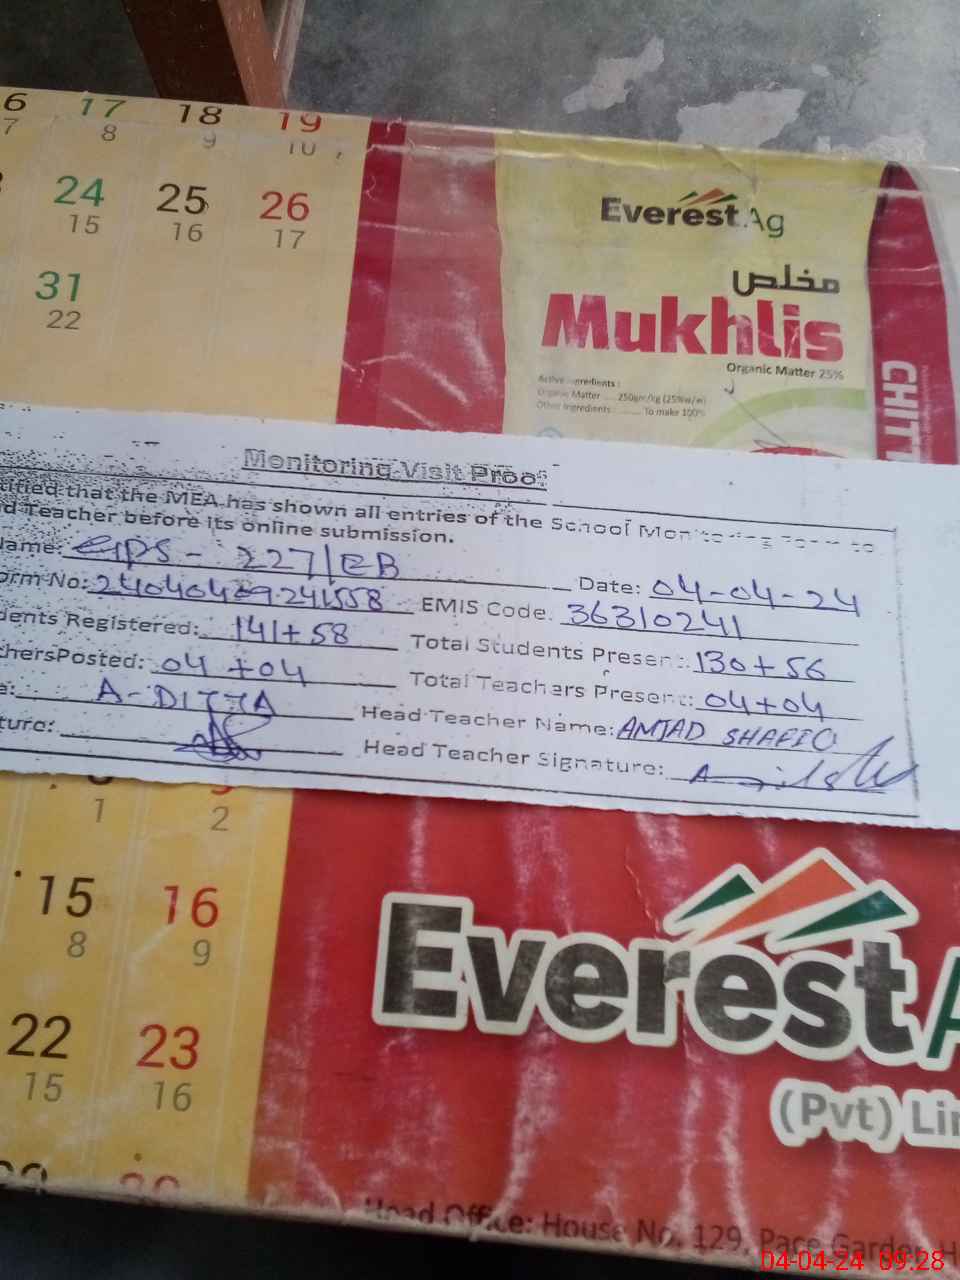 6 17 18 19
7 8 9 10
24 25 26
15 16 17
31
22
EverestAg
مخلص
Mukhlis
Organic Matter 25%
Active ingredients :
Organic Matter ..... 250gm/kg (25%w/w)
Other Ingredients ............ To make 100%
CHIT
Monitoring Visit Proof
tified that the MEA has shown all entries of the School Monitoring Form to
d Teacher before its online submission.
Name: GPS - 227/EB Date: 04-04-24
orm No: EMIS Code. 36310241
dents Registered: 141+58 Total Students Present: 130+56
chersPosted: 04+04 Total Teachers Present: 04+04
e: A-DITTA Head Teacher Name: AMJAD SHAFIQ
ture: Head Teacher Signature:
1 2
15 16
8 9
22 23
15 16
EverestA
(Pvt) Lim
Head Office: House No. 129, Pace Garden H
04-04-24 09:28